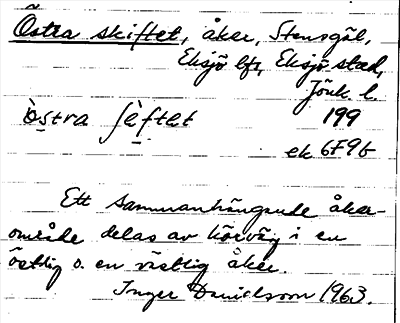 Östra skiftet, åker, Stensgöl,
Eksjö lfs, Eksjö stad,
Jönk. l.
òstra ʃèftet 199
ek 6F9f
Ett sammanhängande åker-
område delas av körväg i en
östlig o. en västlig åker.
Inger Danielsson 1963.